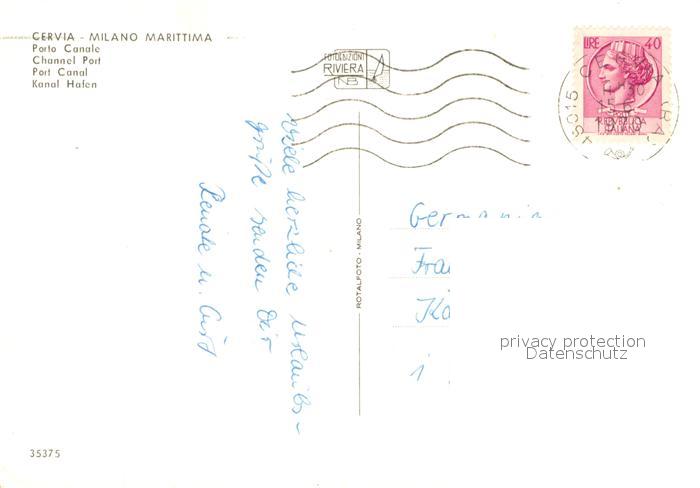 CERVIA - MILANO MARITTIMA
Porto Canale
Channel Port
Port Canal
Kanal Hafen
FOTOEDIZIONI
RIVIERA
NB
LIRE 40
48015 CERVIA (RA)
ITALIANA
Viele herzliche Urlaubs-
grüße senden Dir
Renate u. Curt
ROTALFOTO - MILANO
Germania
Fra
Ko
1
privacy protection
Datenschutz
35375